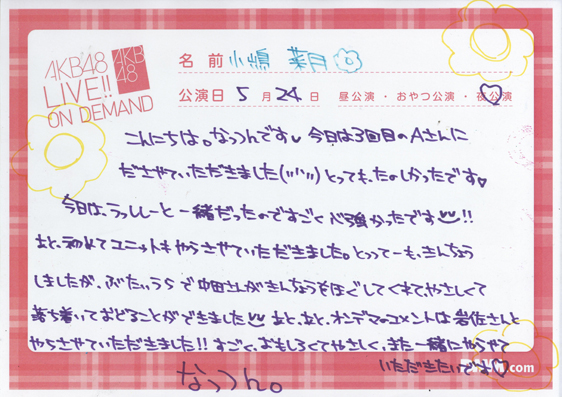 AKB48
LIVE!!
ON DEMAND
AKB
48
名前 小嶋 菜月
公演日 5月24日 昼公演・おやつ公演・夜公演
こんにちは。なっつんです♡ 今日は3回目のAさんに
ださせていただきました(''''') とっても、たのしかったです♡
今日は、うっしーと一緒だったのですごく心強かったです!!
あと、初めてユニットもやらさせていただきました。とってーも、きんちょう
しましたが、ぶたいうらで中田さんがきんちょうをほぐしてくれてやさしくて
落ち着いておどることができました あと、あと、オンデマのコメントは岩佐さんと
やらさせていただきました!! すごく、おもしろくてやさしく、また一緒にやらせて
いただきたいです♡
.com
なっつん。